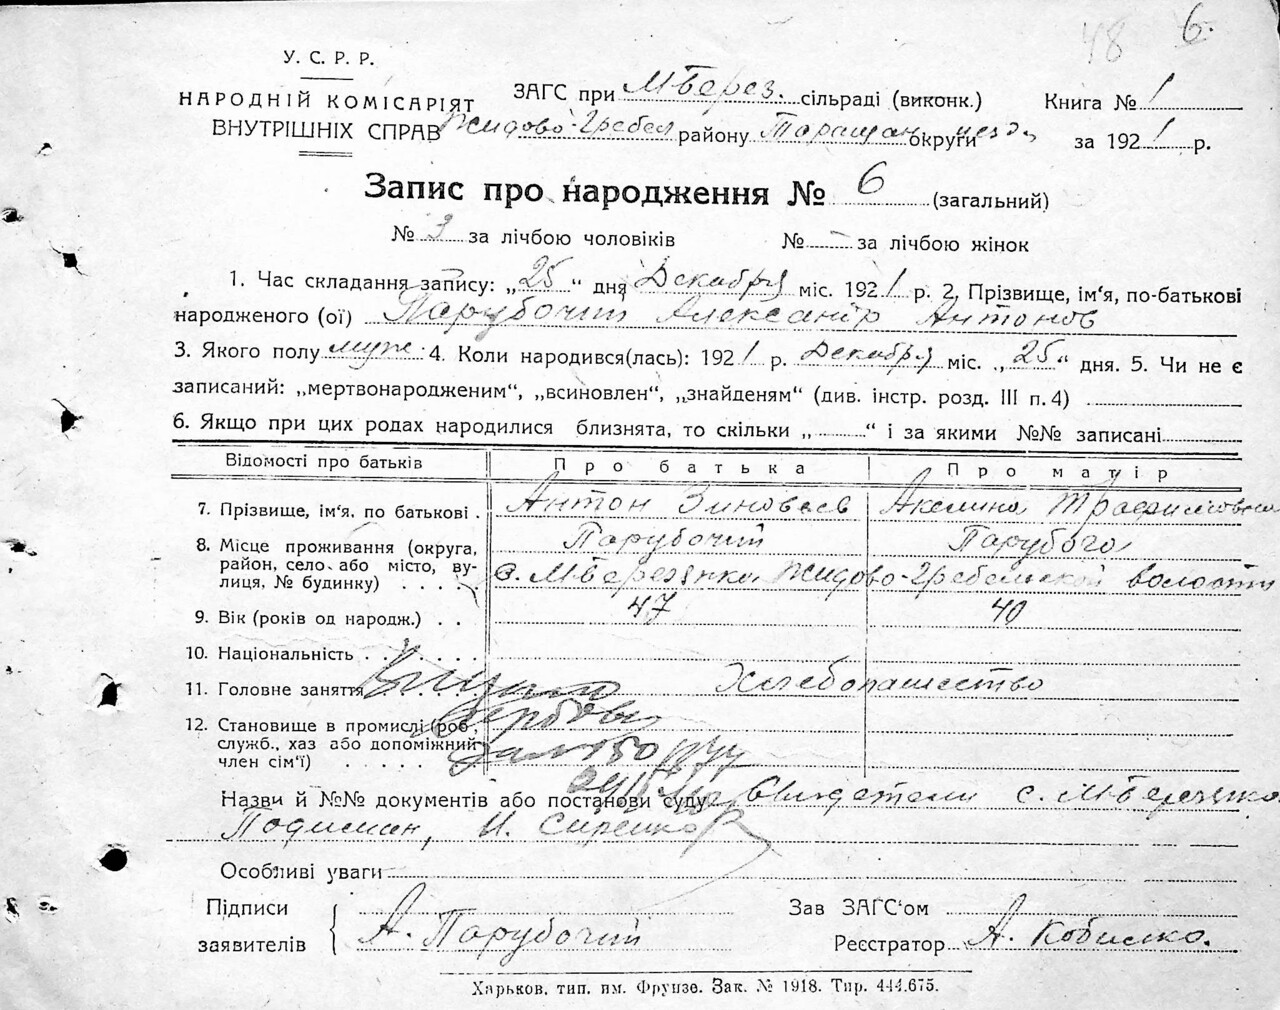 48 6.
У. С. Р. Р.
НАРОДНІЙ КОМІСАРІЯТ
ВНУТРІШНІХ СПРАВ
ЗАГС при М Берез. сільраді (виконк.) Книга № 1
Жидово-Гребел району Таращан округи за 1921 р.
Запис про народження № 6 (загальний)
№ 3 за лічбою чоловіків № – за лічбою жінок
1. Час складання запису: „25“ дня Декабря міс. 1921 р. 2. Прізвище, ім'я, по-батькові
народженого (ої) Парубочий Александр Антонов
3. Якого полу муж. 4. Коли народився(лась): 1921 р. Декабря міс. „25“ дня. 5. Чи не є
записаний: „мертвонародженим“, „всиновлен“, „знайденям“ (див. інстр. розд. III п. 4)
6. Якщо при цих родах народилися близнята, то скільки „ “ і за якими №№ записані
Відомості про батьків Про батька Про матір
7. Прізвище, ім'я, по батькові . Антон Зиновьев Акелина Трафимовна
Парубочий Парубога
8. Місце проживання (округа,
район, село або місто, ву-
лиця, № будинку) . . . . с. М Березянка Жидово-Гребельской волости
9. Вік (років од народж.) . . 47 40
10. Національність . . . . . .
11. Головне заняття Хлебопашество
12. Становище в промислі (роб.,
служб., хаз або допоміжний
член сім'ї) . . . . .
Назви й №№ документів або постанови суду Свидетели с. М Березянка
Подишан, И. Сиренко
Особливі уваги
Підписи
заявителів А. Парубочий
Зав ЗАГС'ом
Реєстратор А. Кобилко.
Харьков, тип. им. Фрунзе. Зак. № 1918. Тир. 444.675.